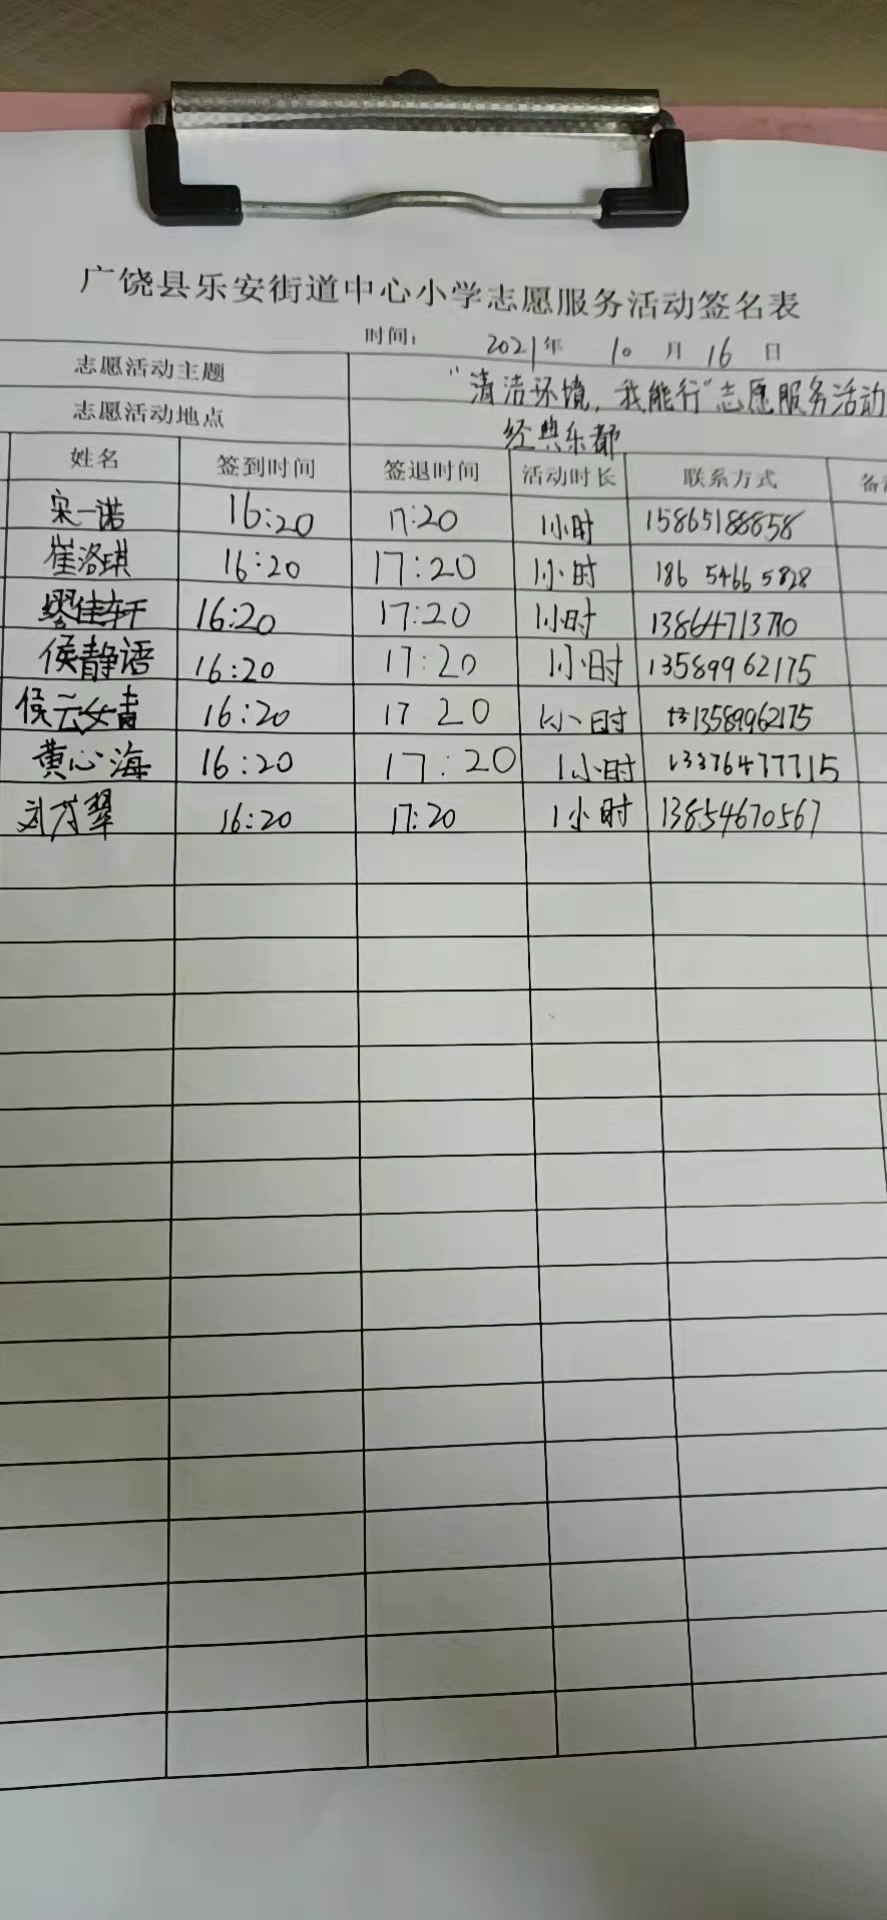 广饶县乐安街道中心小学志愿服务活动签名表
时间： 2021年 10 月 16 日
志愿活动主题 “清洁环境，我能行”志愿服务活动
志愿活动地点 经典乐都
姓名 签到时间 签退时间 活动时长 联系方式 备
宋一诺 16:20 17:20 1小时 15865188858
崔洛琪 16:20 17:20 1小时 186 5466 5828
缪佳轩 16:20 17:20 1小时
侯静语 16:20 17:20 1小时 13589962175
侯云婧 16:20 17 20 1小时 13589962175
黄心海 16:20 17:20 1小时 13376477715
刘 翠 16:20 17:20 1小时 13854670567